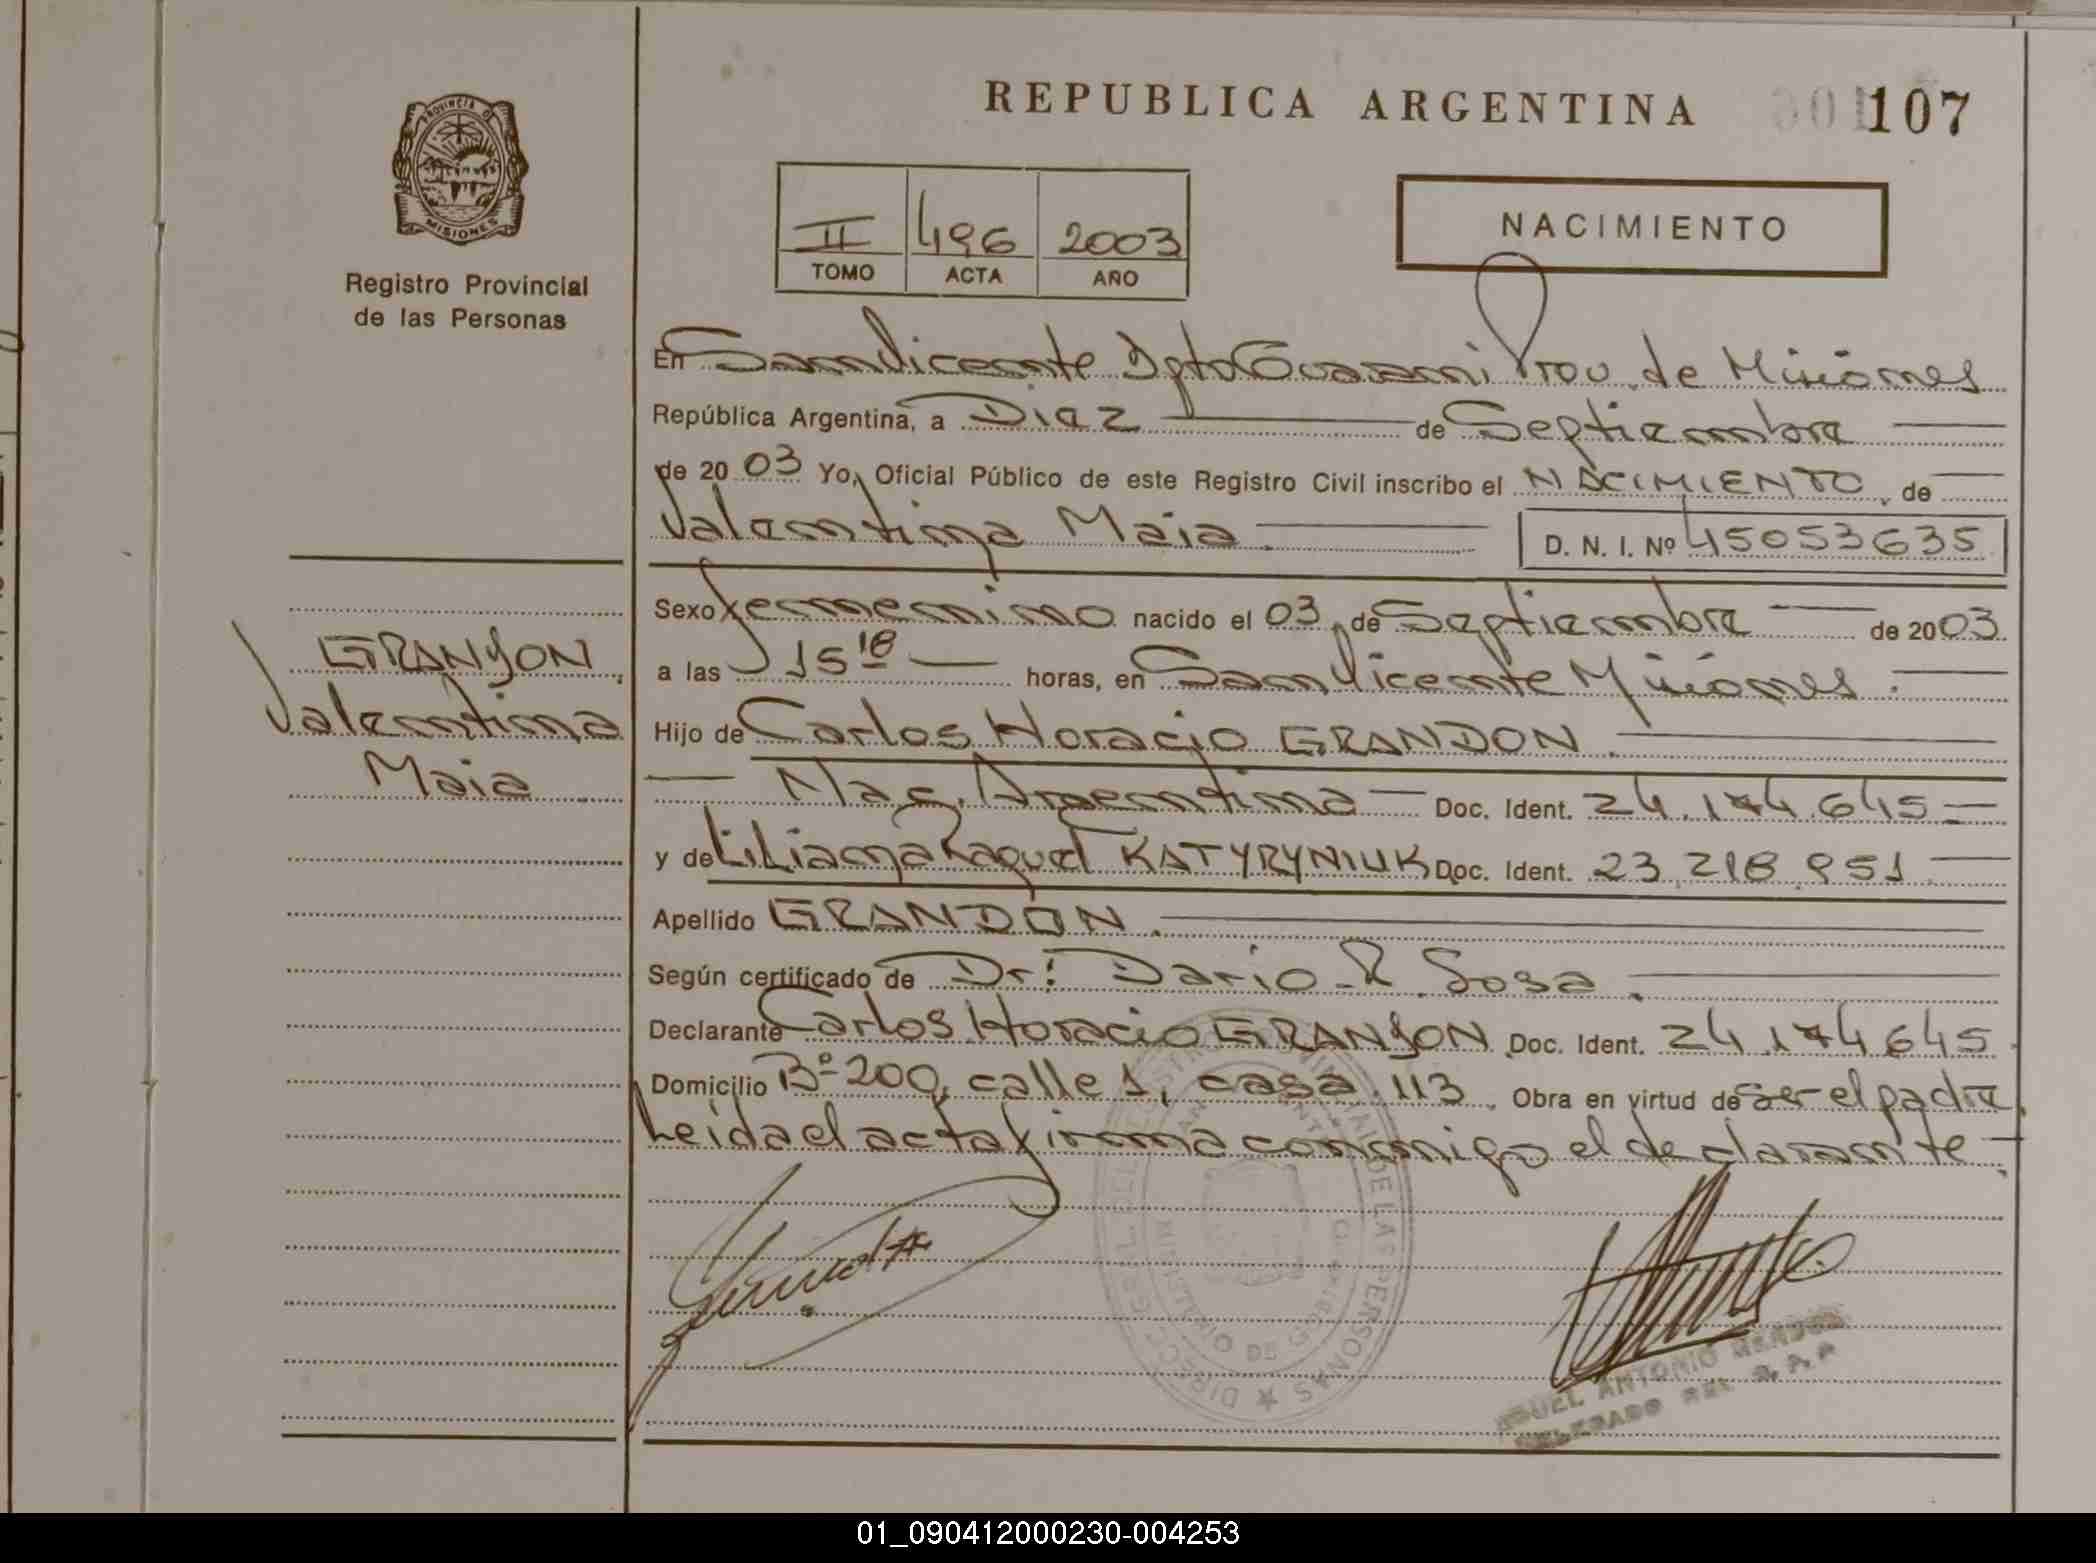 REPUBLICA ARGENTINA 107
PROVINCIA D
MISIONES
Registro Provincial
de las Personas
II 496 2003
TOMO ACTA AÑO
NACIMIENTO
En San Vicente Dpto Guarani Prov. de Misiones
República Argentina, a Diez de Septiembre
de 2003 Yo, Oficial Público de este Registro Civil inscribo el NACIMIENTO, de
Valentina Maia D. N. I. Nº 45053635
Sexo femenino nacido el 03 de Septiembre de 2003.
a las 15 18 horas, en San Vicente Misiones.
Hijo de Carlos Horacio GRANDON.
Nac. Argentina Doc. Ident. 24.174.645
y de Liliana Raquel KATYRYNIUK Doc. Ident. 23.218.951
Apellido GRANDON.
Según certificado de Dr: Dario R. Sosa.
Declarante Carlos Horacio GRANDON Doc. Ident. 24.174.645
Domicilio Bº 200, calle 1, casa 113. Obra en virtud de ser el padre.
Leida el acta firma conmigo el declarante
GRANDON,
Valentina
Maia
ANTONIO
DELEGADO
DE LAS PERSONAS
01_090412000230-004253